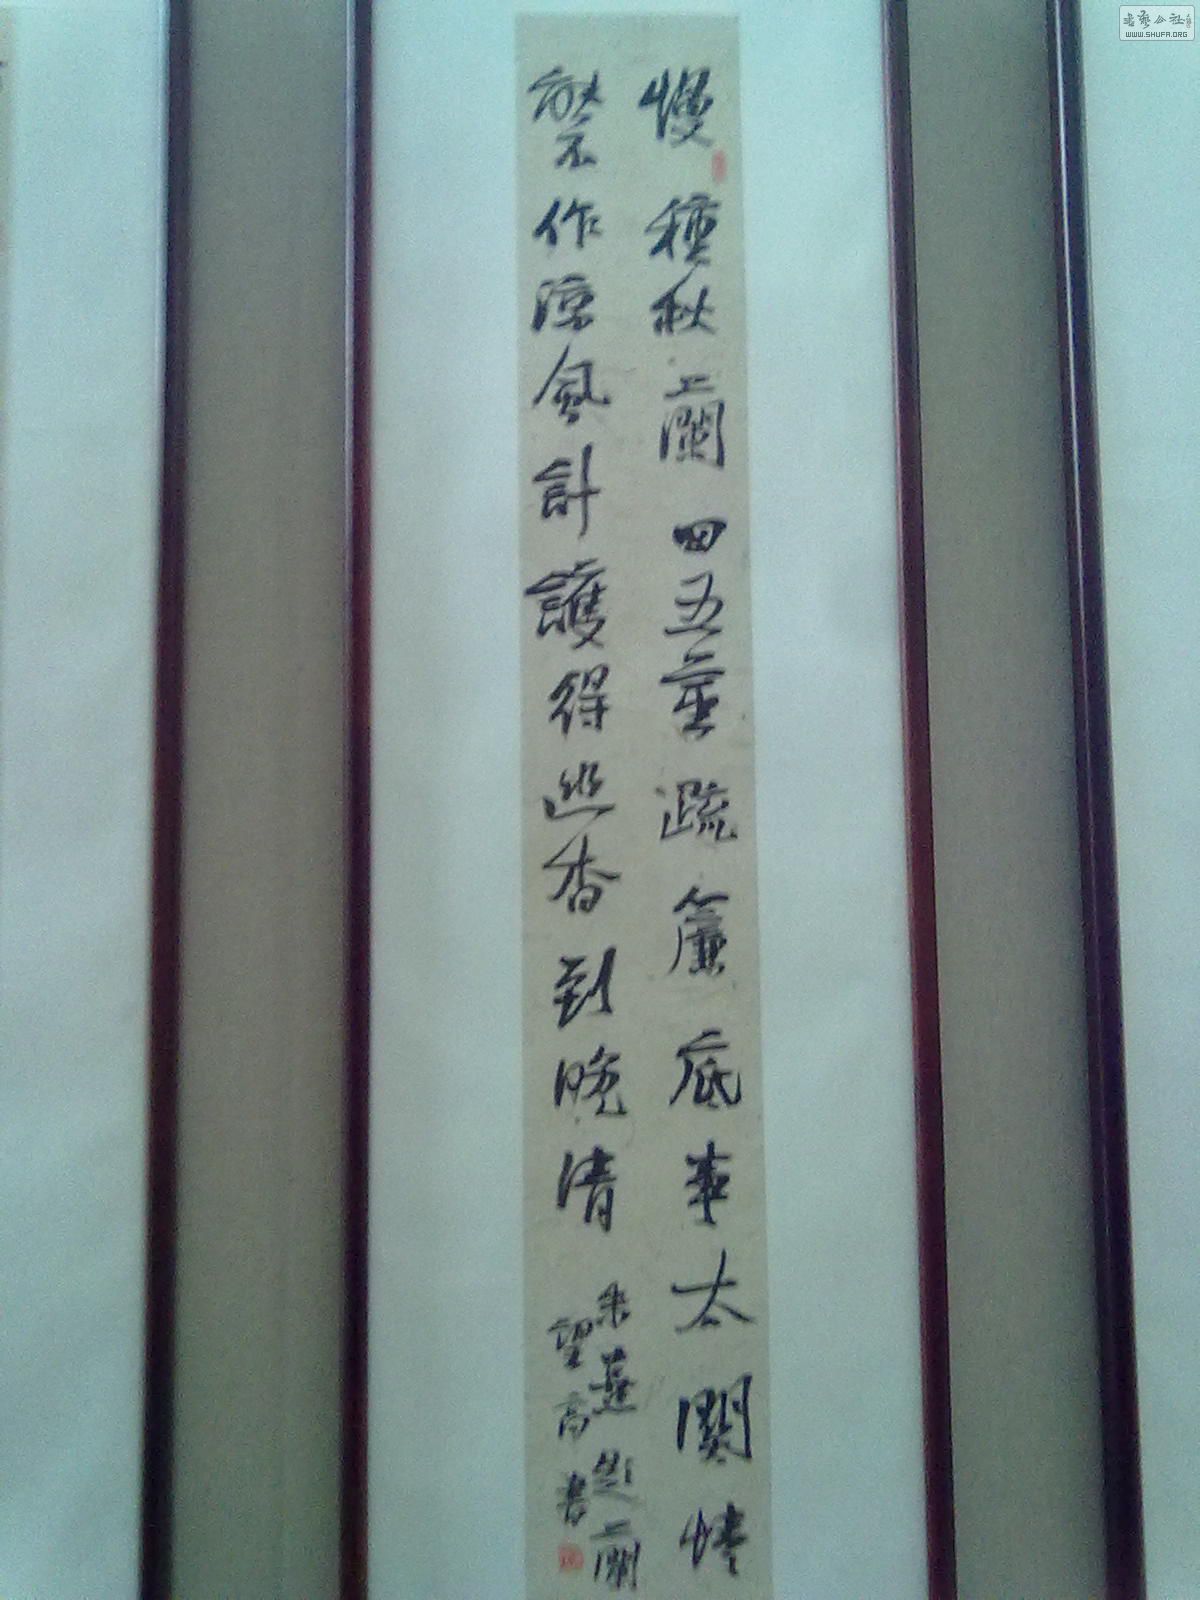 慢種秋蘭四五莖疏簾底事太關情
不作涼風計護得幽香到晚清
朱熹題蘭
望高書
書藝公社
WWW.SHUFA.ORG